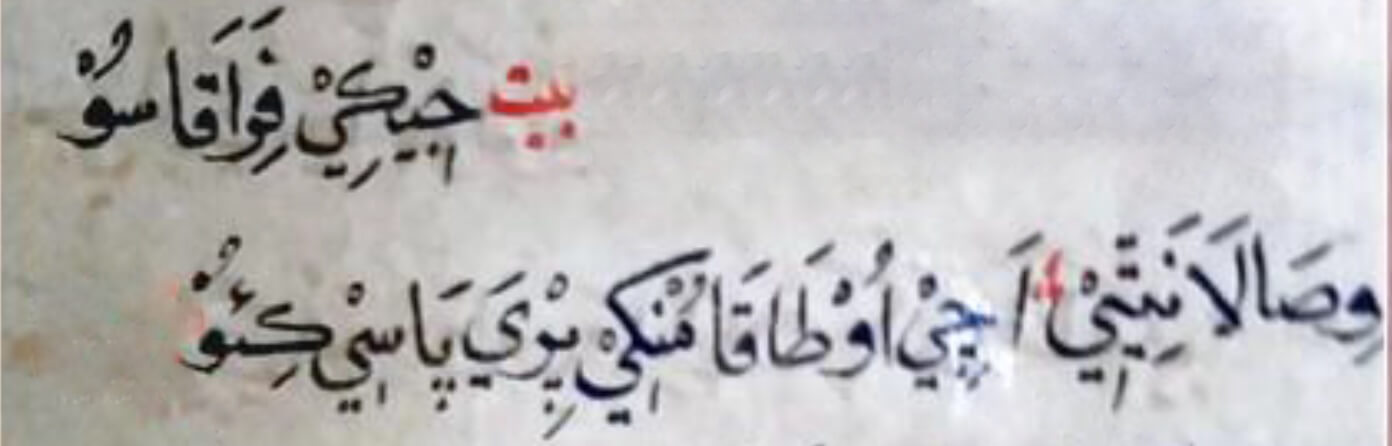 بيت جٖيْكِيْ فِوَاقَا سوُْ
وِصَالَا نَنِتٖيْ اَجٖيْ اُوْطَاقَا مْنْكٖيْ بِوْيَ پَاسٖيْ كِئوُْ